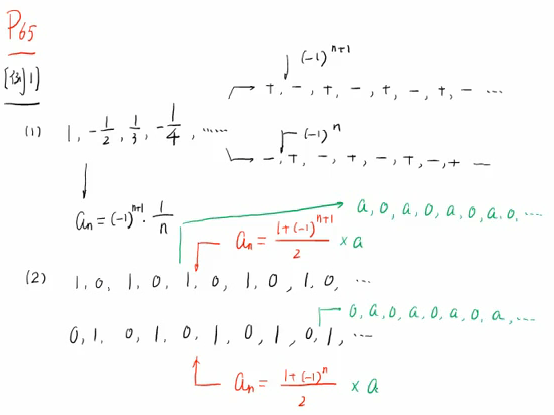 P65
[例1]
(-1)^{n+1}
+, -, +, -, +, -, +, - ...
(1) 1, -1/2, 1/3, -1/4, ......
(-1)^n
-, +, -, +, -, +, -, + ...
a_n = (-1)^{n+1} · 1/n
a, 0, a, 0, a, 0, a, 0, ...
a_n = (1+(-1)^{n+1})/2 × a
(2) 1, 0, 1, 0, 1, 0, 1, 0, 1, 0, ...
0, a, 0, a, 0, a, 0, a, ...
0, 1, 0, 1, 0, 1, 0, 1, 0, 1, ...
a_n = (1+(-1)^n)/2 × a